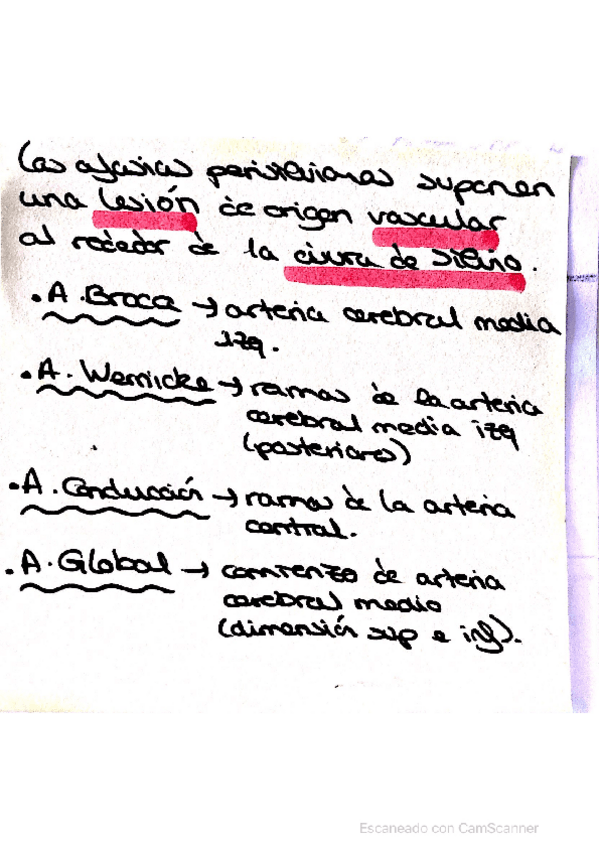 Las afasias perisilvianas suponen
una lesión de origen vascular
al rededor de la cisura de Silvio.
. A. Broca → arteria cerebral media
izq.
. A. Wernicke → ramas de la arteria
cerebral media izq
(posteriores)
. A. Conducción → ramas de la arteria
central.
. A. Global → comienzo de arteria
cerebral media
(dimensión sup e inf).
Escaneado con CamScanner